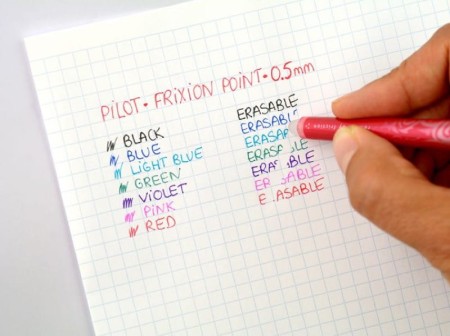 PILOT • FRIXION POINT • 0.5mm
BLACK
BLUE
LIGHT BLUE
GREEN
VIOLET
PINK
RED
ERASABLE
ERASABL
ERASAB
ERASABLE
ERA ABLE
ER ABLE
E ASABLE